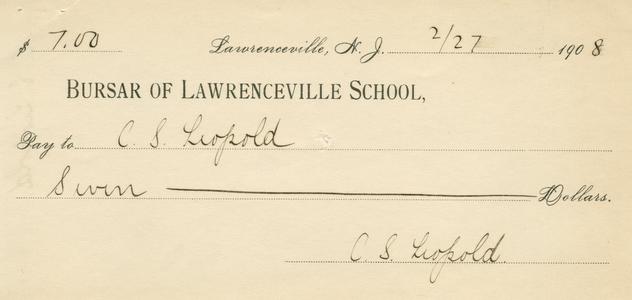 $ 7.00 Lawrenceville, N. J. 2/27 1908
BURSAR OF LAWRENCEVILLE SCHOOL,
Pay to C. S. Leopold
Seven Dollars.
C. S. Leopold.